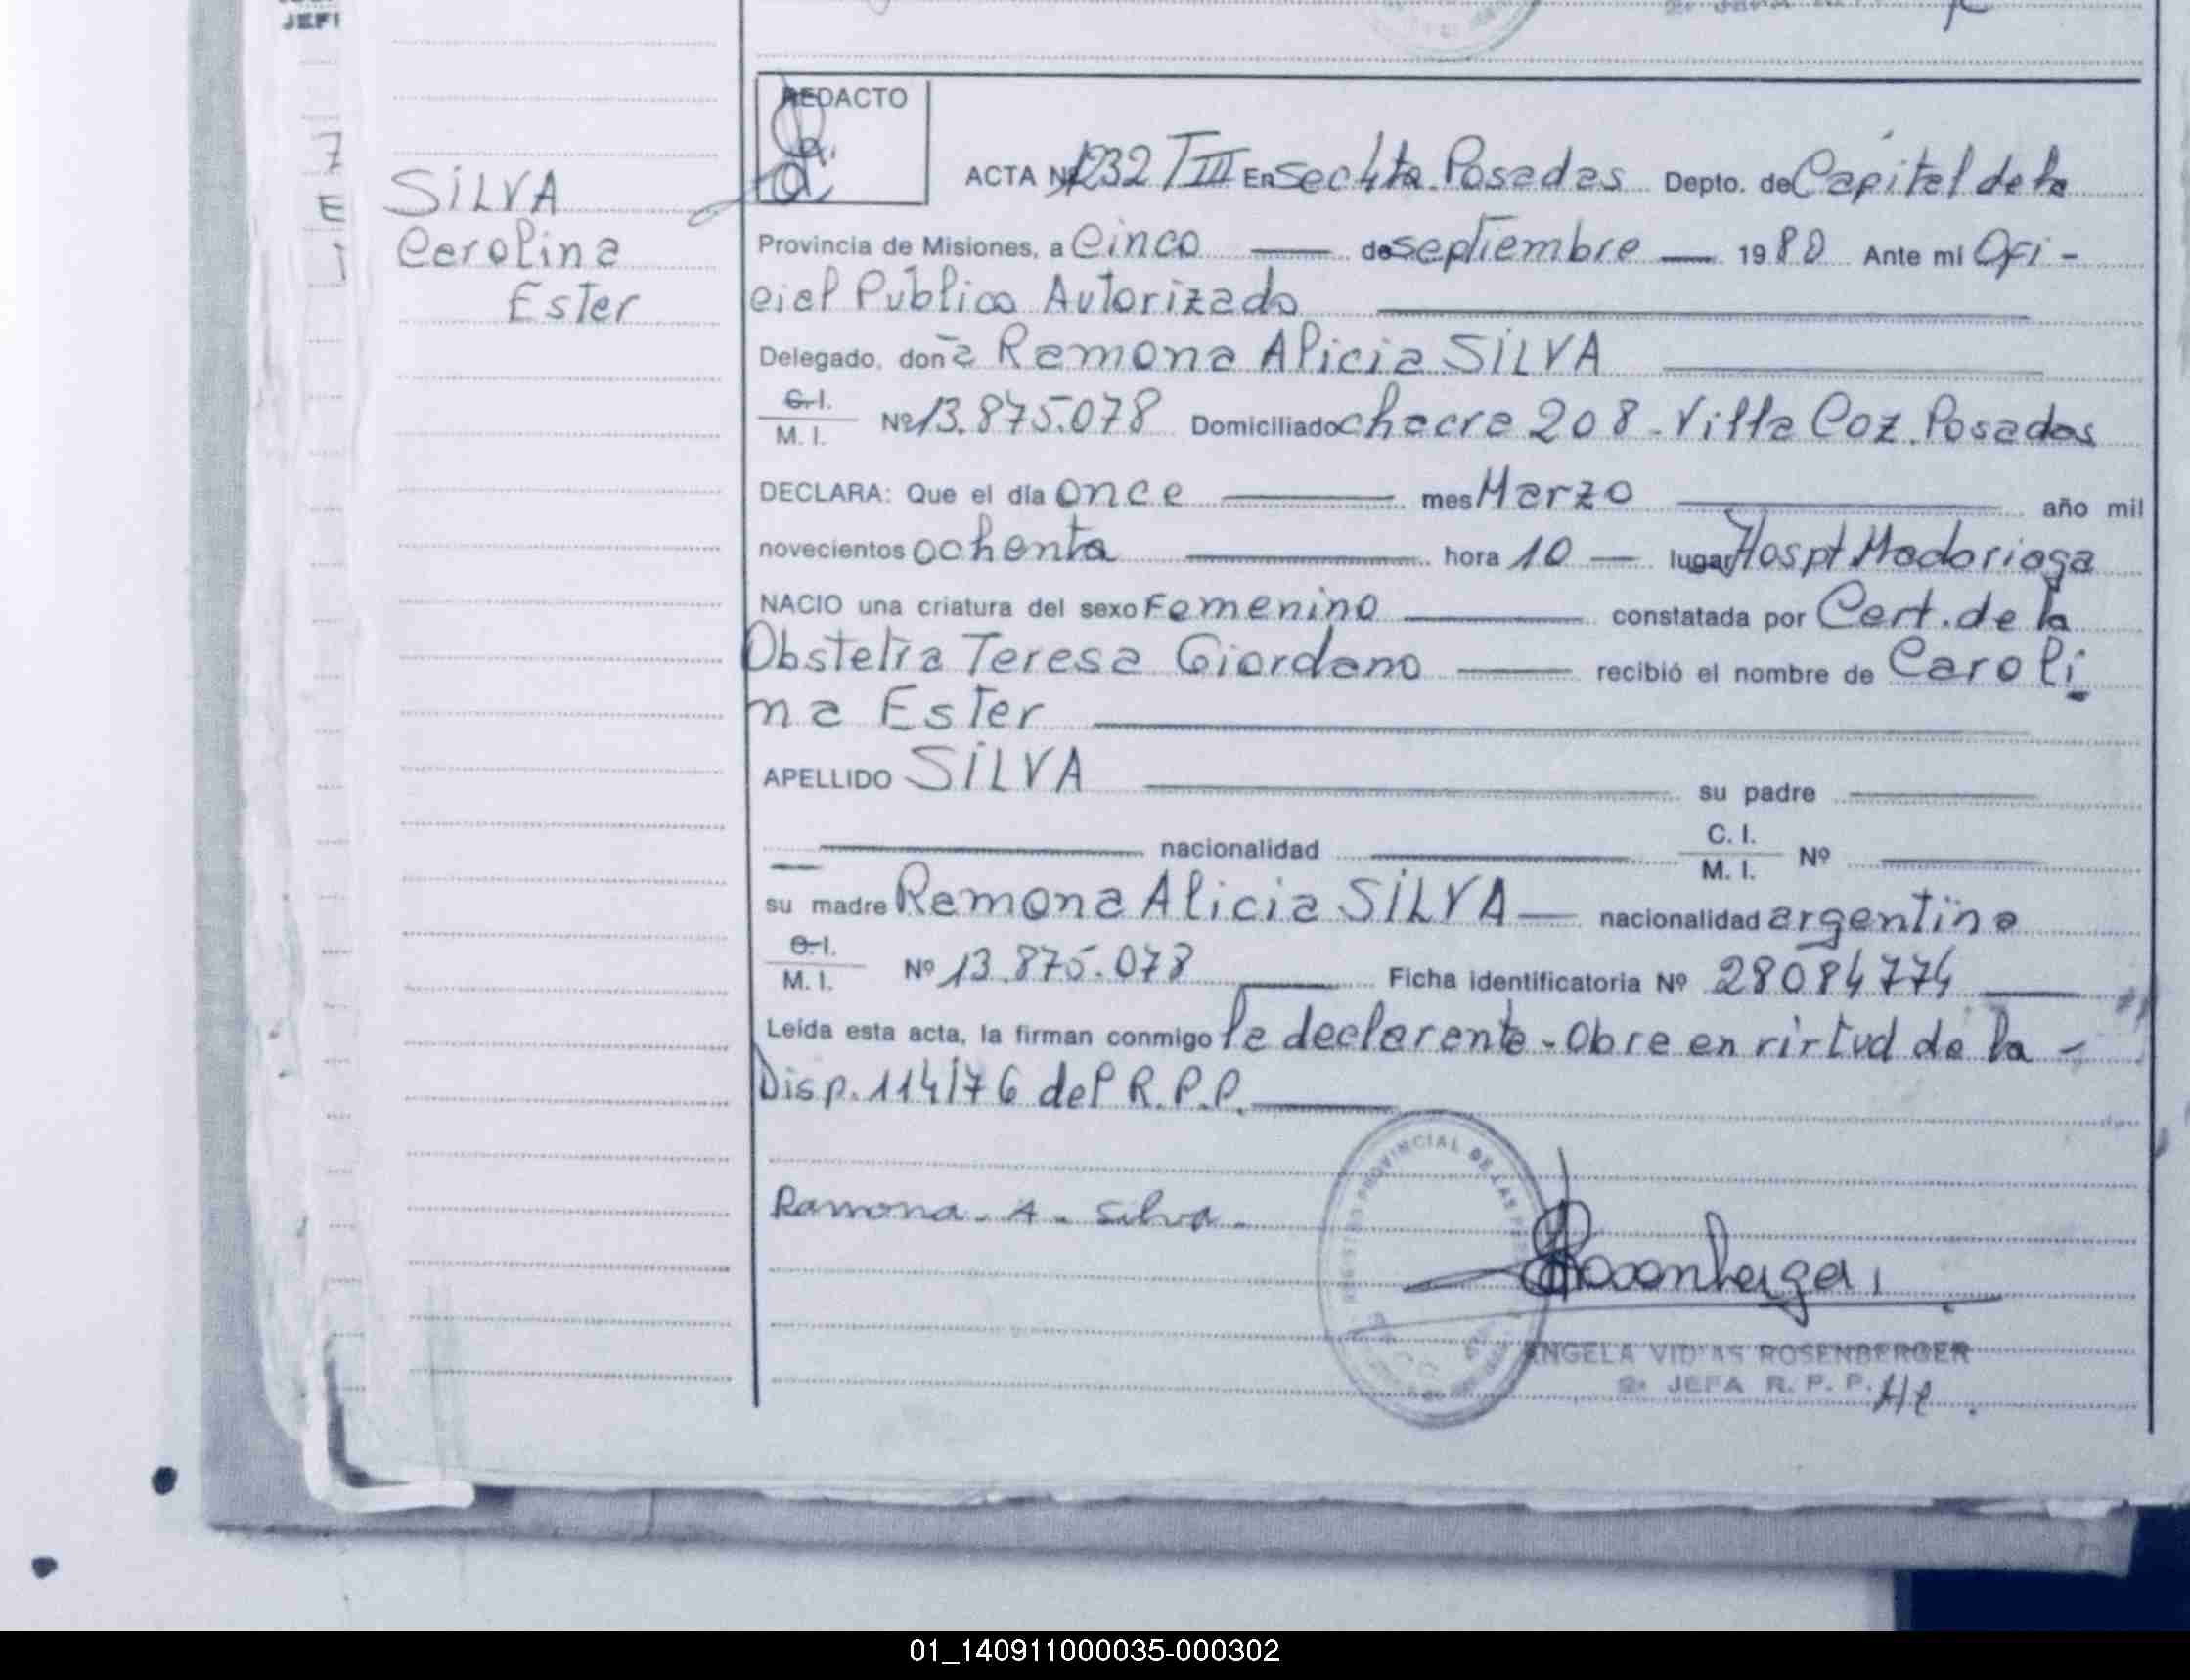 JEFI
7
E
SILVA
Carolina
Ester
REDACTO
ACTA Nº 1232 T III En Sec 4ta. Posadas Depto. de Capital de la
Provincia de Misiones, a Cinco de septiembre 1980 Ante mi Ofi-
cial Publico Autorizado
Delegado, doña Ramona Alicia SILVA
C.I.
M. I. Nº 13.875.078 Domiciliado chacra 208 - Villa Coz. Posadas
DECLARA: Que el día once mes Marzo año mil
novecientos ochenta hora 10 lugar Hospt Madariaga
NACIO una criatura del sexo Femenino constatada por Cert. de la
Obstetra Teresa Giordano recibió el nombre de Caroli
na Ester
APELLIDO SILVA su padre
nacionalidad C. I.
M. I. Nº
su madre Ramona Alicia SILVA nacionalidad argentina
C.I.
M. I. Nº 13.875.078 Ficha identificatoria Nº 28084774
Leída esta acta, la firman conmigo la declarante - Obra en virtud de la -
Disp. 114/76 del R.P.P.
REGISTRO PROVINCIAL DE LAS
Ramona. A. Silva.
Rosenberger
ANGELA VIDAS ROSENBERGER
2ª JEFA R. P. P.
01_140911000035-000302